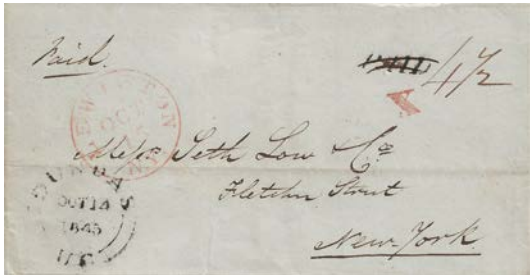 Paid.
PAID 4½
LEWISTON
OCT
N.Y.
Messrs Seth Low & Co
Fletcher Street
New-York
DUNDAS
OCT 14
1845
U.C.